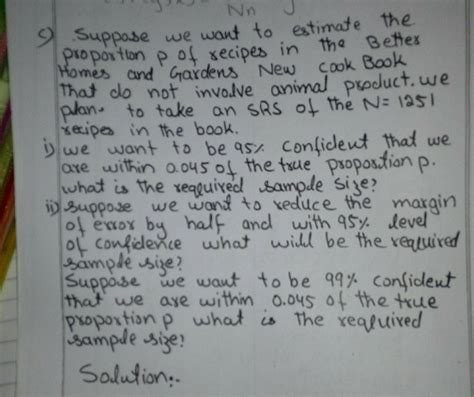 Nn
5) Suppose we want to estimate the
proportion p of recipes in the Better
Homes and Gardens New Cook Book
That do not involve animal product. we
plan to take an SRS of the N= 1251
recipes in the book.
i) we want to be 95% Confident that we
are within 0.045 of the true proportion p.
what is the required sample size?
ii) suppose we want to reduce the margin
of error by half and with 95% level
of confidence what will be the required
sample size?
Suppose we want to be 99% confident
that we are within 0.045 of the true
proportion p what is the required
sample size?
Solution:-